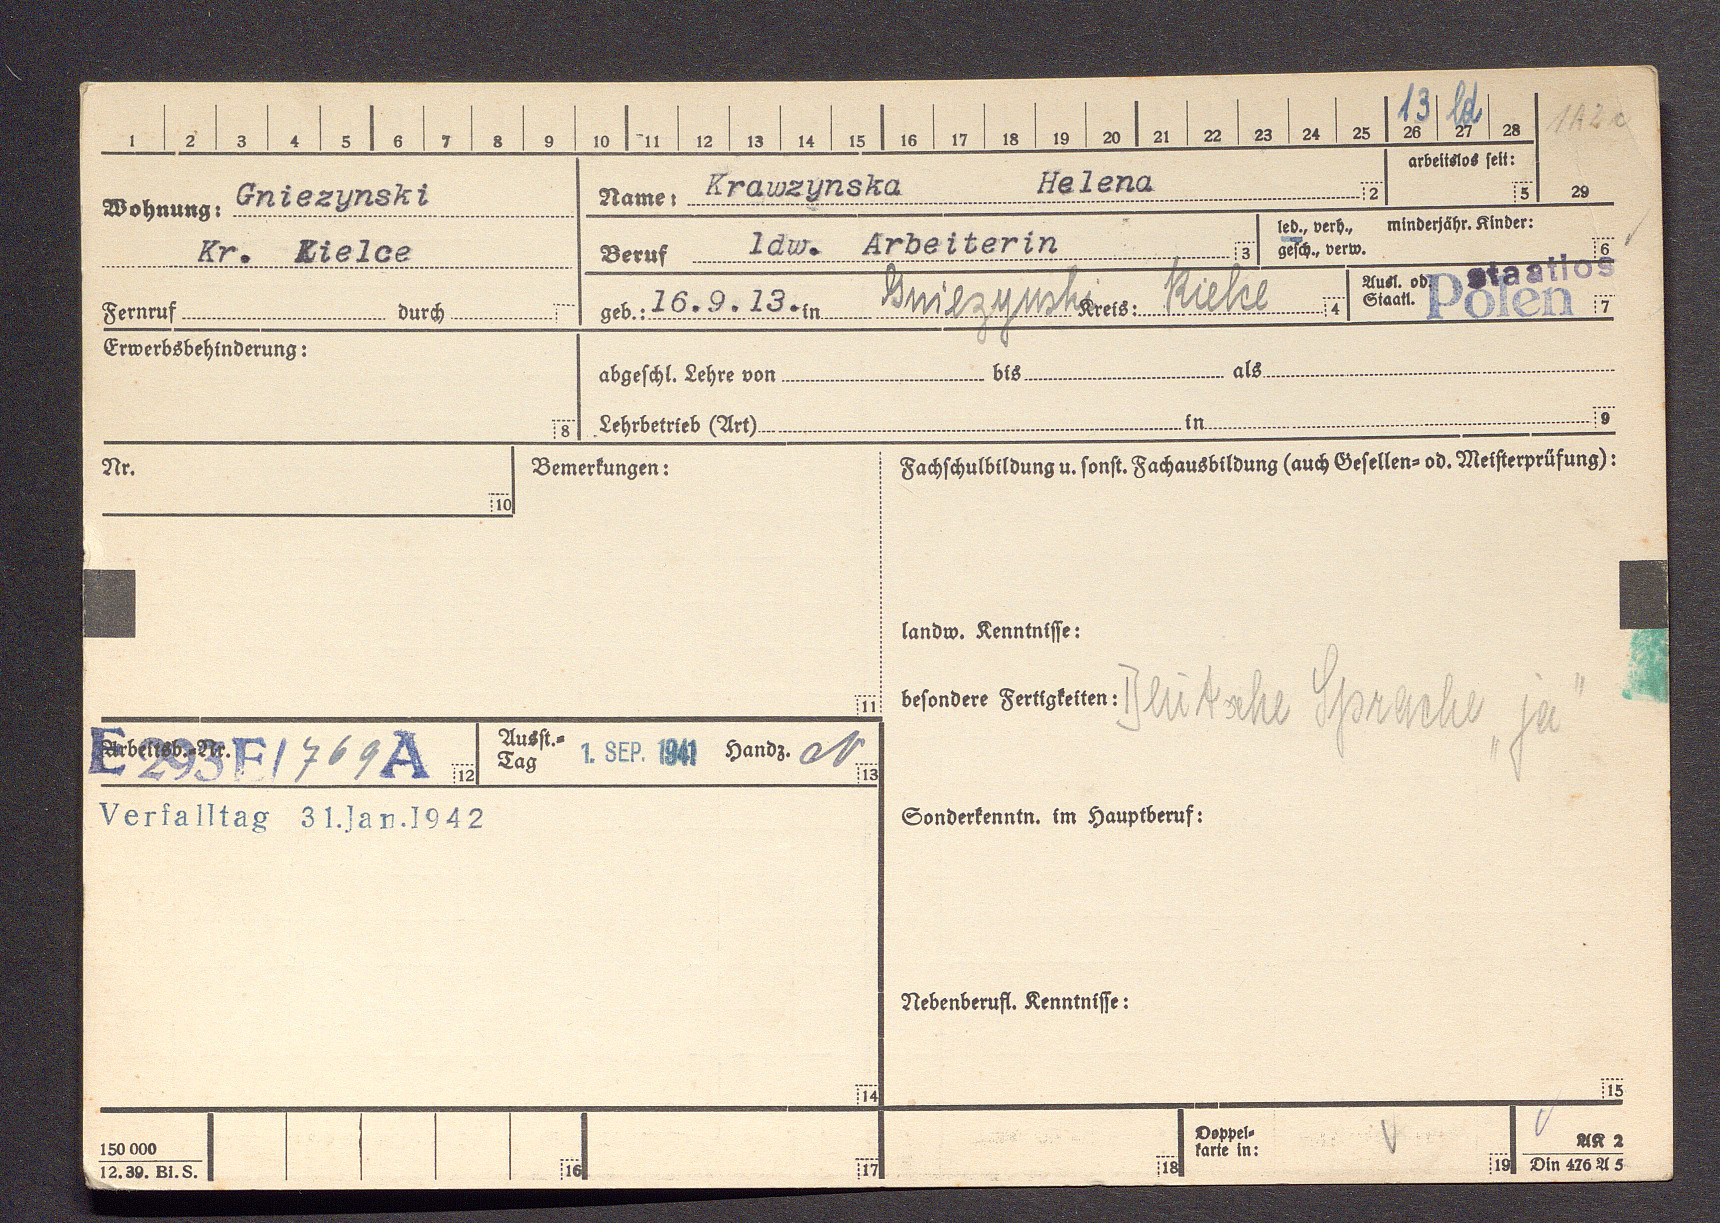 13 ld
1 2 3 4 5 6 7 8 9 10 11 12 13 14 15 16 17 18 19 20 21 22 23 24 25 26 27 28
29
Wohnung: Gniezynski
Kr. Kielce
Name: Krawzynska Helena 2
arbeitslos seit: 5
Beruf ldw. Arbeiterin 3
led., verh., minderjähr. Kinder:
gesch., verw. 6
Fernruf durch
geb.: 16.9.13. in Gniezynski Kreis: Kielce 4
Ausl. od. staatlos
Staatl. Polen 7
Erwerbsbehinderung: 8
abgeschl. Lehre von bis als
Lehrbetrieb (Art) in 9
Nr. 10
Bemerkungen: 11
Fachschulbildung u. sonst. Fachausbildung (auch Gesellen- od. Meisterprüfung):
landw. Kenntnisse:
besondere Fertigkeiten: Deutsche Sprache „ja"
Arbeitsb.-Nr. E 293 E/769 A 12
Ausst.-Tag 1. SEP. 1941 Handz. 13
Verfalltag 31.Jan.1942
Sonderkenntn. im Hauptberuf:
Nebenberufl. Kenntnisse:
14
15
150 000
12. 39. Bl. S.
16
17
18
Doppel-
karte in: 19
AK 2
Din 476 A 5